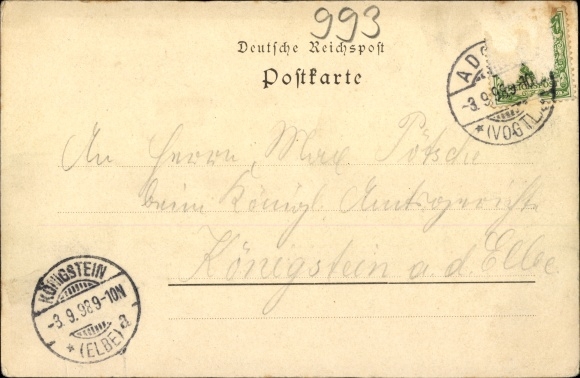 993
Deutsche Reichspost
Postkarte
ADO
-3.9.98
*(VOGTL.
An Herrn Max Pötsche
beim Königl. Amtsgericht
Königstein a. d. Elbe
KÖNIGSTEIN
-3.9.98 9-10N
*(ELBE) a